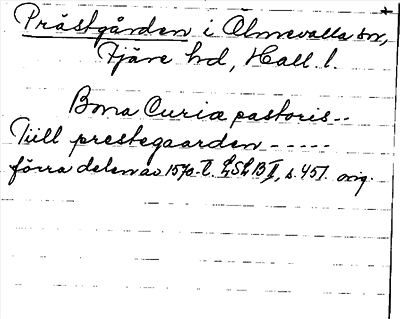 Prästgården i Ölmevalla sn,
Fjäre hd, Hall. l.
Bona Curiæ pastoris --
Tiill prestegaarden -----
förra delen av 1570-t. LSLB II, s. 451. orig.